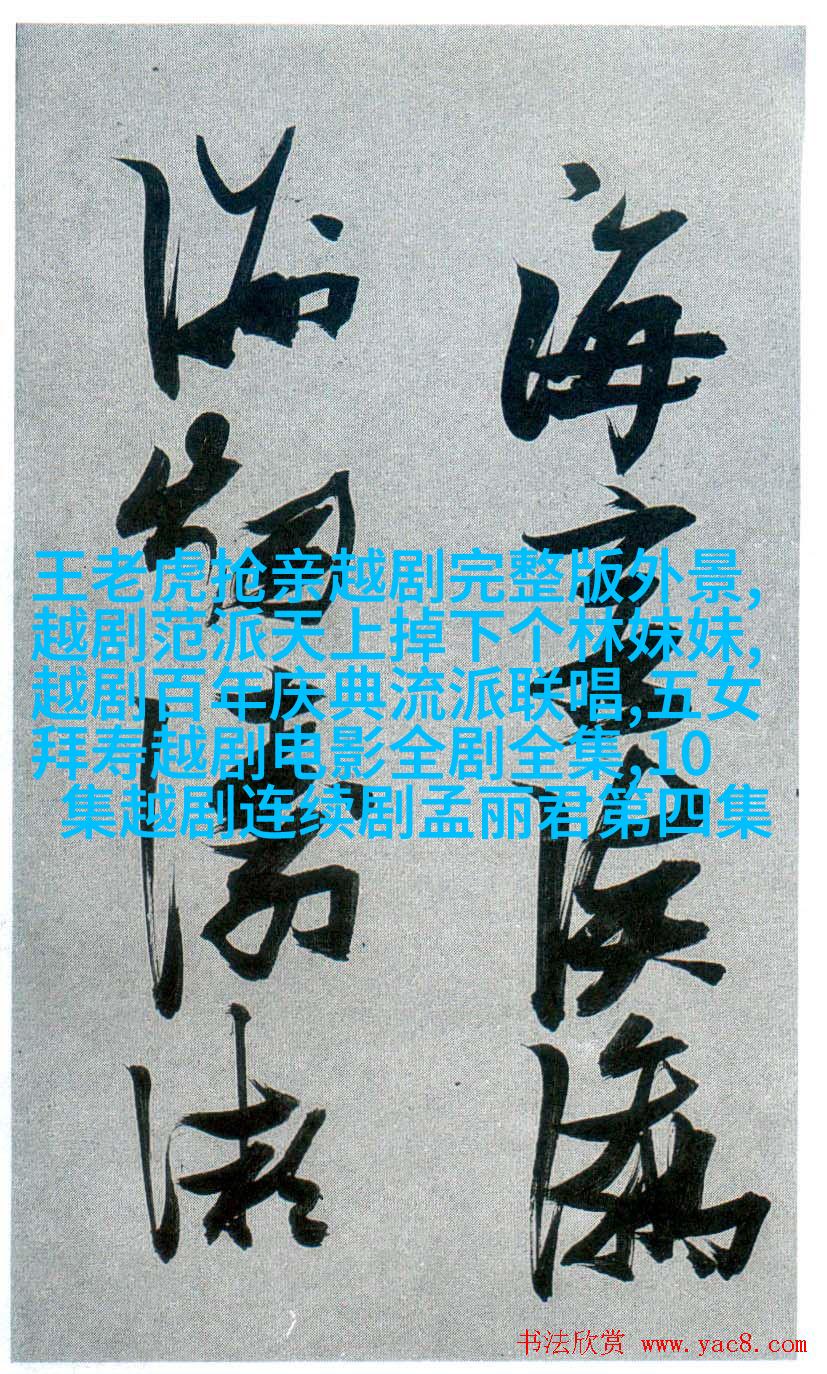 海
王老虎抢亲越剧完整版外景,
越剧范派天上掉下个林妹妹,
越剧百年庆典流派联唱,五女
拜寿越剧电影全剧全集,10
集越剧连续剧孟丽君第四集
书法欣赏 www.yac8.com